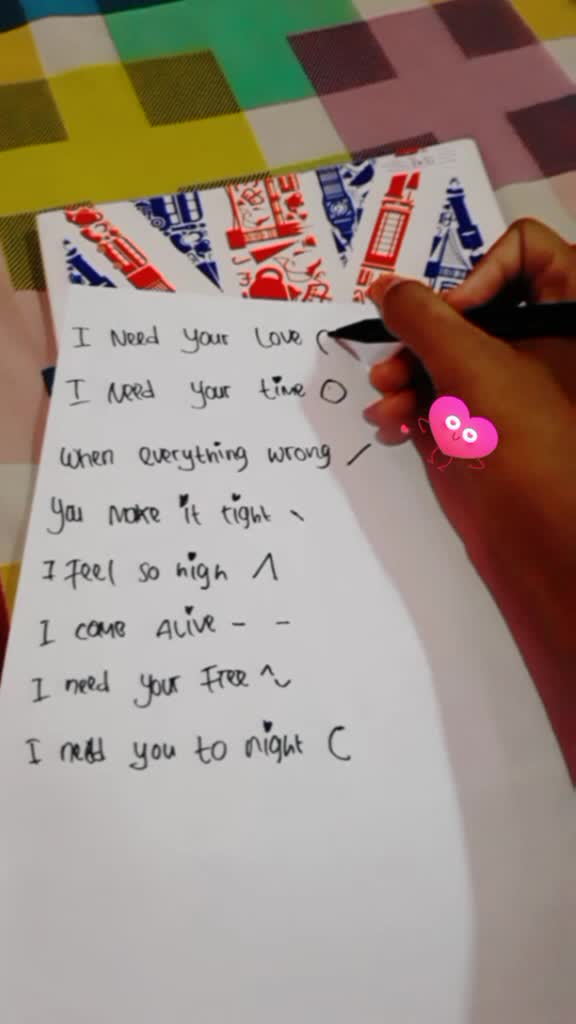 I Need your Love (
I Need your time O
When everything wrong /
You Make it tight \
I Feel so high /\
I come Alive - -
I need your Free ~
I need you to night (